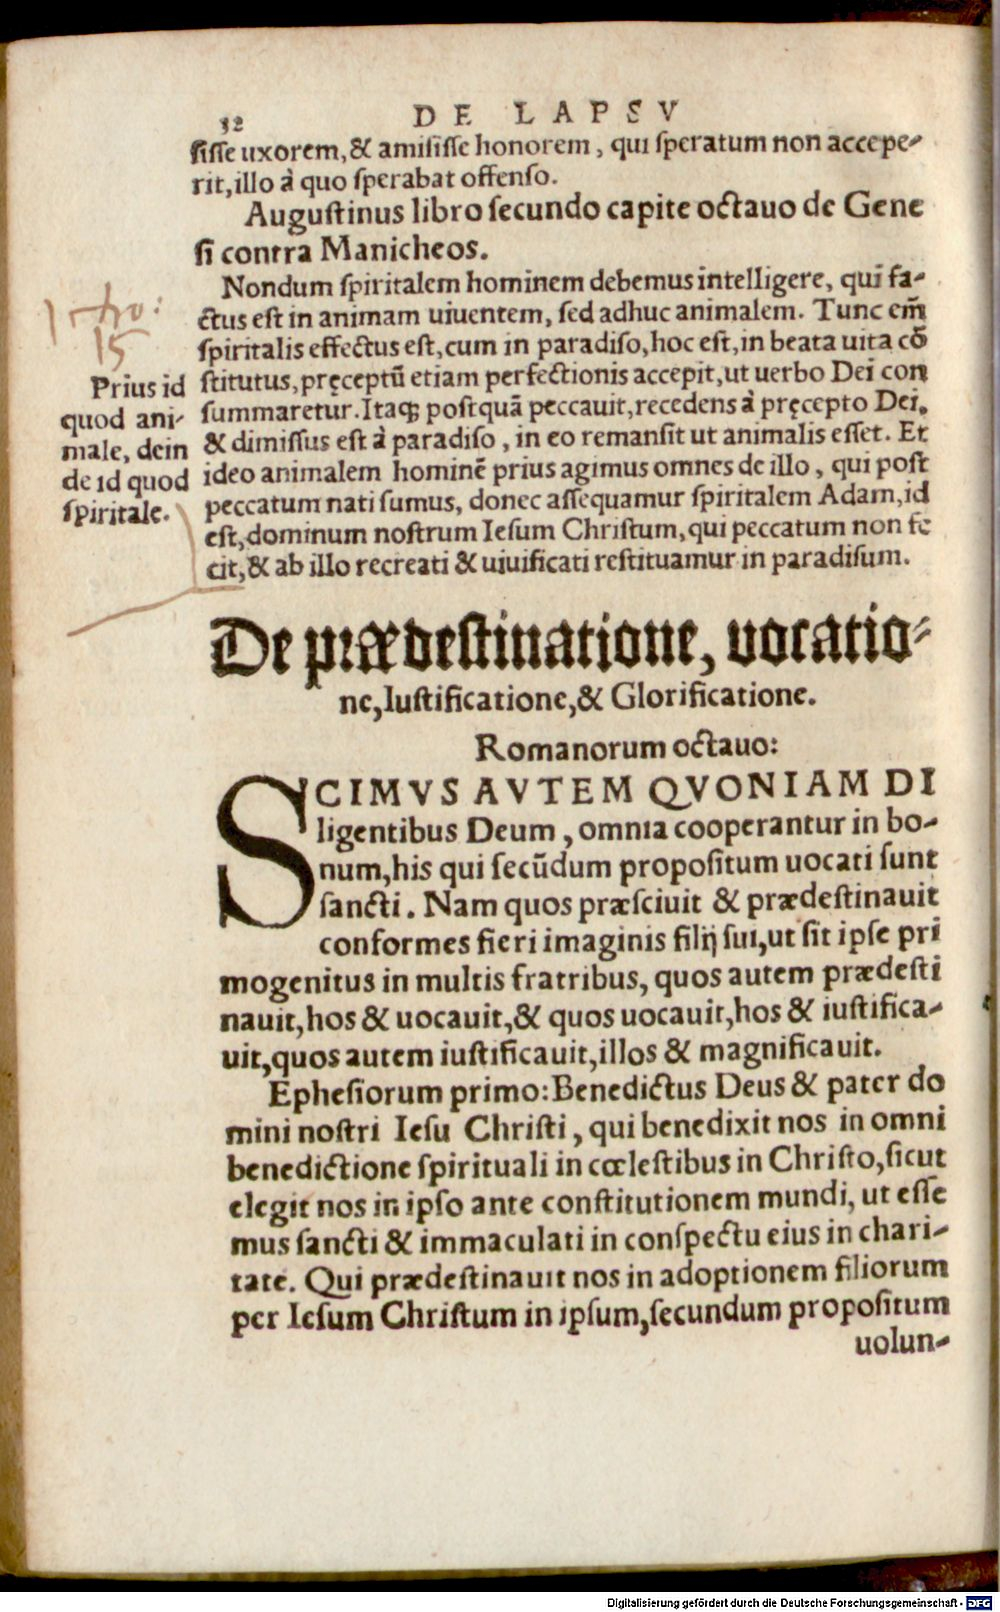 32 DE LAPSV
sisse uxorem, & amisisse honorem, qui speratum non accepe-
rit, illo à quo sperabat offenso.
Augustinus libro secundo capite octauo de Gene
si contra Manicheos.
Nondum spiritalem hominem debemus intelligere, qui fa-
ctus est in animam uiuentem, sed adhuc animalem. Tunc em̃
spiritalis effectus est, cum in paradiso, hoc est, in beata uita cō
stitutus, pręceptū etiam perfectionis accepit, ut uerbo Dei con
summaretur. Itaqꝫ postquā peccauit, recedens à pręcepto Dei,
& dimissus est à paradiso, in eo remansit ut animalis esset. Et
ideo animalem hominē prius agimus omnes de illo, qui post
peccatum nati sumus, donec assequamur spiritalem Adam, id
est, dominum nostrum Iesum Christum, qui peccatum non fe
cit, & ab illo recreati & uiuificati restituamur in paradisum.
15
Prius id
quod ani-
male, dein
de id quod
spiritale.
De prædestinatione, uocatio-
ne, Iustificatione, & Glorificatione.
Romanorum octauo:
SCIMVS AVTEM QVONIAM DI
ligentibus Deum, omnia cooperantur in bo-
num, his qui secūdum propositum uocati sunt
sancti. Nam quos præsciuit & prædestinauit
conformes fieri imaginis filij sui, ut sit ipse pri
mogenitus in multis fratribus, quos autem prædesti
nauit, hos & uocauit, & quos uocauit, hos & iustifica-
uit, quos autem iustificauit, illos & magnificauit.
Ephesiorum primo: Benedictus Deus & pater do
mini nostri Iesu Christi, qui benedixit nos in omni
benedictione spirituali in cœlestibus in Christo, sicut
elegit nos in ipso ante constitutionem mundi, ut esse
mus sancti & immaculati in conspectu eius in chari-
tate. Qui prædestinauit nos in adoptionem filiorum
per Iesum Christum in ipsum, secundum propositum
uolun-
Digitalisierung gefördert durch die Deutsche Forschungsgemeinschaft - DFG